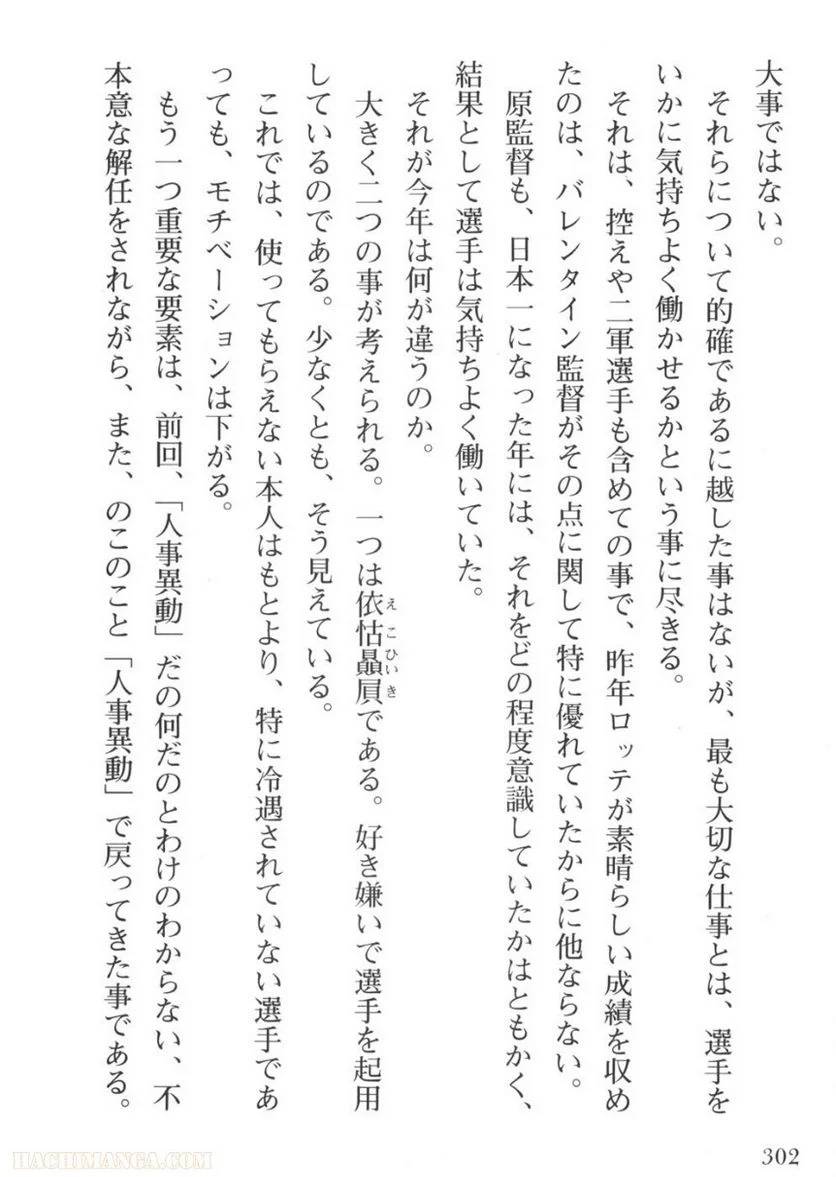 大事ではない。
それらについて的確であるに越した事はないが、最も大切な仕事とは、選手を
いかに気持ちよく働かせるかという事に尽きる。
それは、控えや二軍選手も含めての事で、昨年ロッテが素晴らしい成績を収め
たのは、バレンタイン監督がその点に関して特に優れていたからに他ならない。
原監督も、日本一になった年には、それをどの程度意識していたかはともかく、
結果として選手は気持ちよく働いていた。
それが今年は何が違うのか。
大きく二つの事が考えられる。一つは依怙贔屓である。好き嫌いで選手を起用
えこひいき
しているのである。少なくとも、そう見えている。
これでは、使ってもらえない本人はもとより、特に冷遇されていない選手であ
っても、モチベーションは下がる。
もう一つ重要な要素は、前回、「人事異動」だの何だのとわけのわからない、不
本意な解任をされながら、また、のこのこと「人事異動」で戻ってきた事である。
302
HACHIMANGA.COM